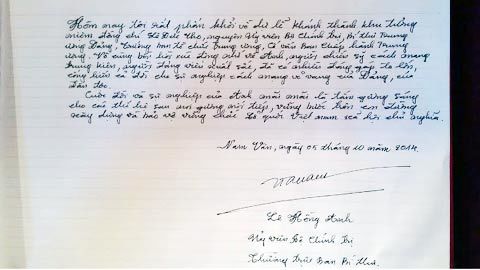 Hôm nay tôi rất phấn khởi về dự lễ khánh thành khu tưởng
niệm đồng chí Lê Đức Thọ, nguyên Ủy viên Bộ Chính trị, Bí thư Trung
ương Đảng, Trưởng ban tổ chức Trung ương, Cố vấn Ban Chấp hành Trung
ương. Vô cùng biết ơn của đồng chí về Anh, người chiến sỹ cách mạng
trung kiên, người đảng viên xuất sắc đã có nhiều đóng góp to lớn,
cống hiến cả đời cho sự nghiệp cách mạng vẻ vang của Đảng, của
dân tộc.
Cuộc đời và sự nghiệp của Anh mãi mãi là tấm gương sáng
cho các thế hệ sau noi gương nối tiếp, vững bước trên con đường
xây dựng và bảo vệ vững chắc Tổ quốc Việt Nam xã hội chủ nghĩa.
Nam Vân, ngày 05 tháng 10 năm 2014.
Lê Hồng Anh
Ủy viên Bộ Chính trị
Thường trực Ban Bí thư.